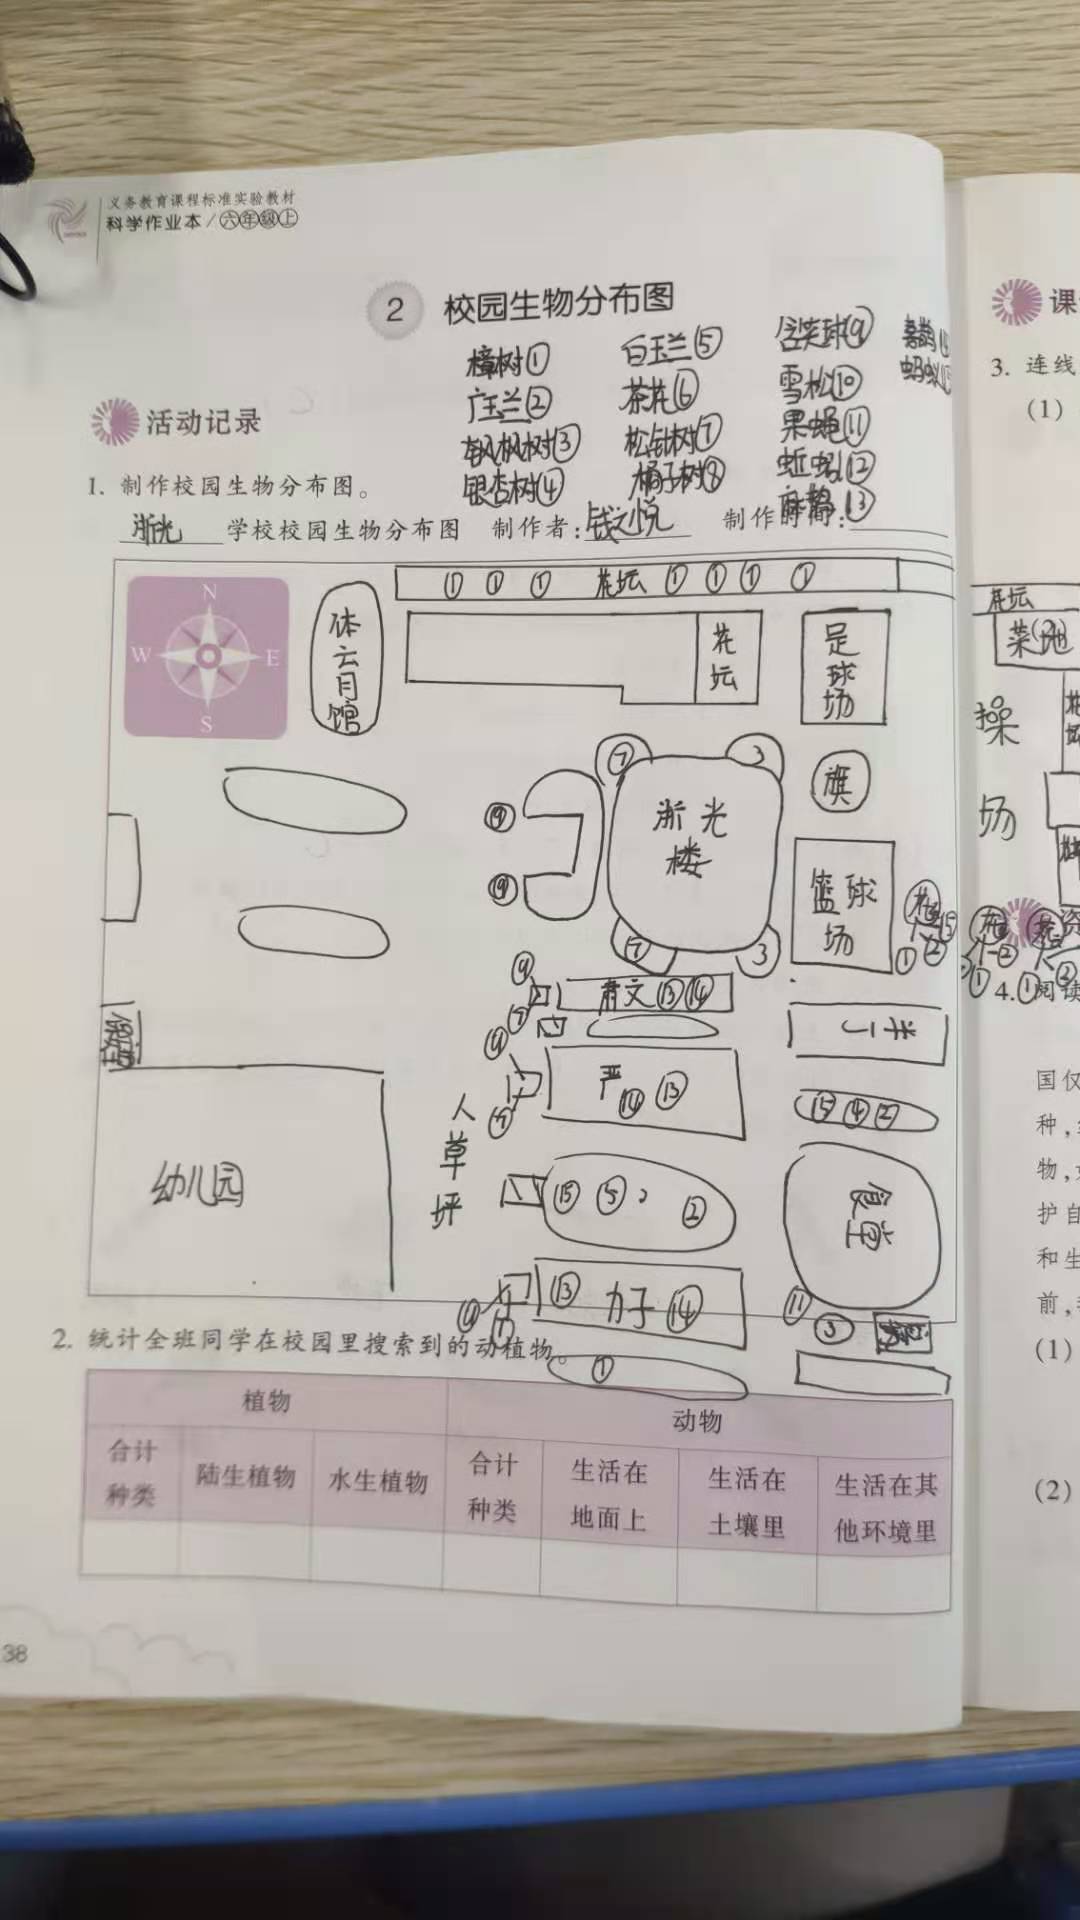 义务教育课程标准实验教材
科学作业本/六年级上
2 校园生物分布图
樟树① 白玉兰⑤ 含笑球⑨ 喜鹊
广玉兰② 茶花⑥ 雪松⑩ 蚂蚁
枫树③ 松针树⑦ 果蝇⑪
银杏树④ 橘子树⑧ 蚯蚓⑫
麻鹊⑬
活动记录
1. 制作校园生物分布图。
浙光 学校校园生物分布图 制作者: 钱之悦 制作时间:
N
W E
S
体育馆
① ① ① 花坛 ① ① ① ①
花坛
足球场
旗
⑦ 3
浙光楼
⑦ 3
篮球场
⑨
⑨
肃文⑬⑭
严⑭ ⑬
⑮ ④ ②
人草坪
幼儿园
⑮ ⑤ ②
食堂
⑬ 力子 ⑭
⑪ ③
①
2. 统计全班同学在校园里搜索到的动植物。
植物 动物
合计种类 陆生植物 水生植物 合计种类 生活在地面上 生活在土壤里 生活在其他环境里
38
课
3. 连线
(1)
花坛
菜地
操场
资
4. 阅读
国仅
种,
物,
护自
和生
前,
(1)
(2)